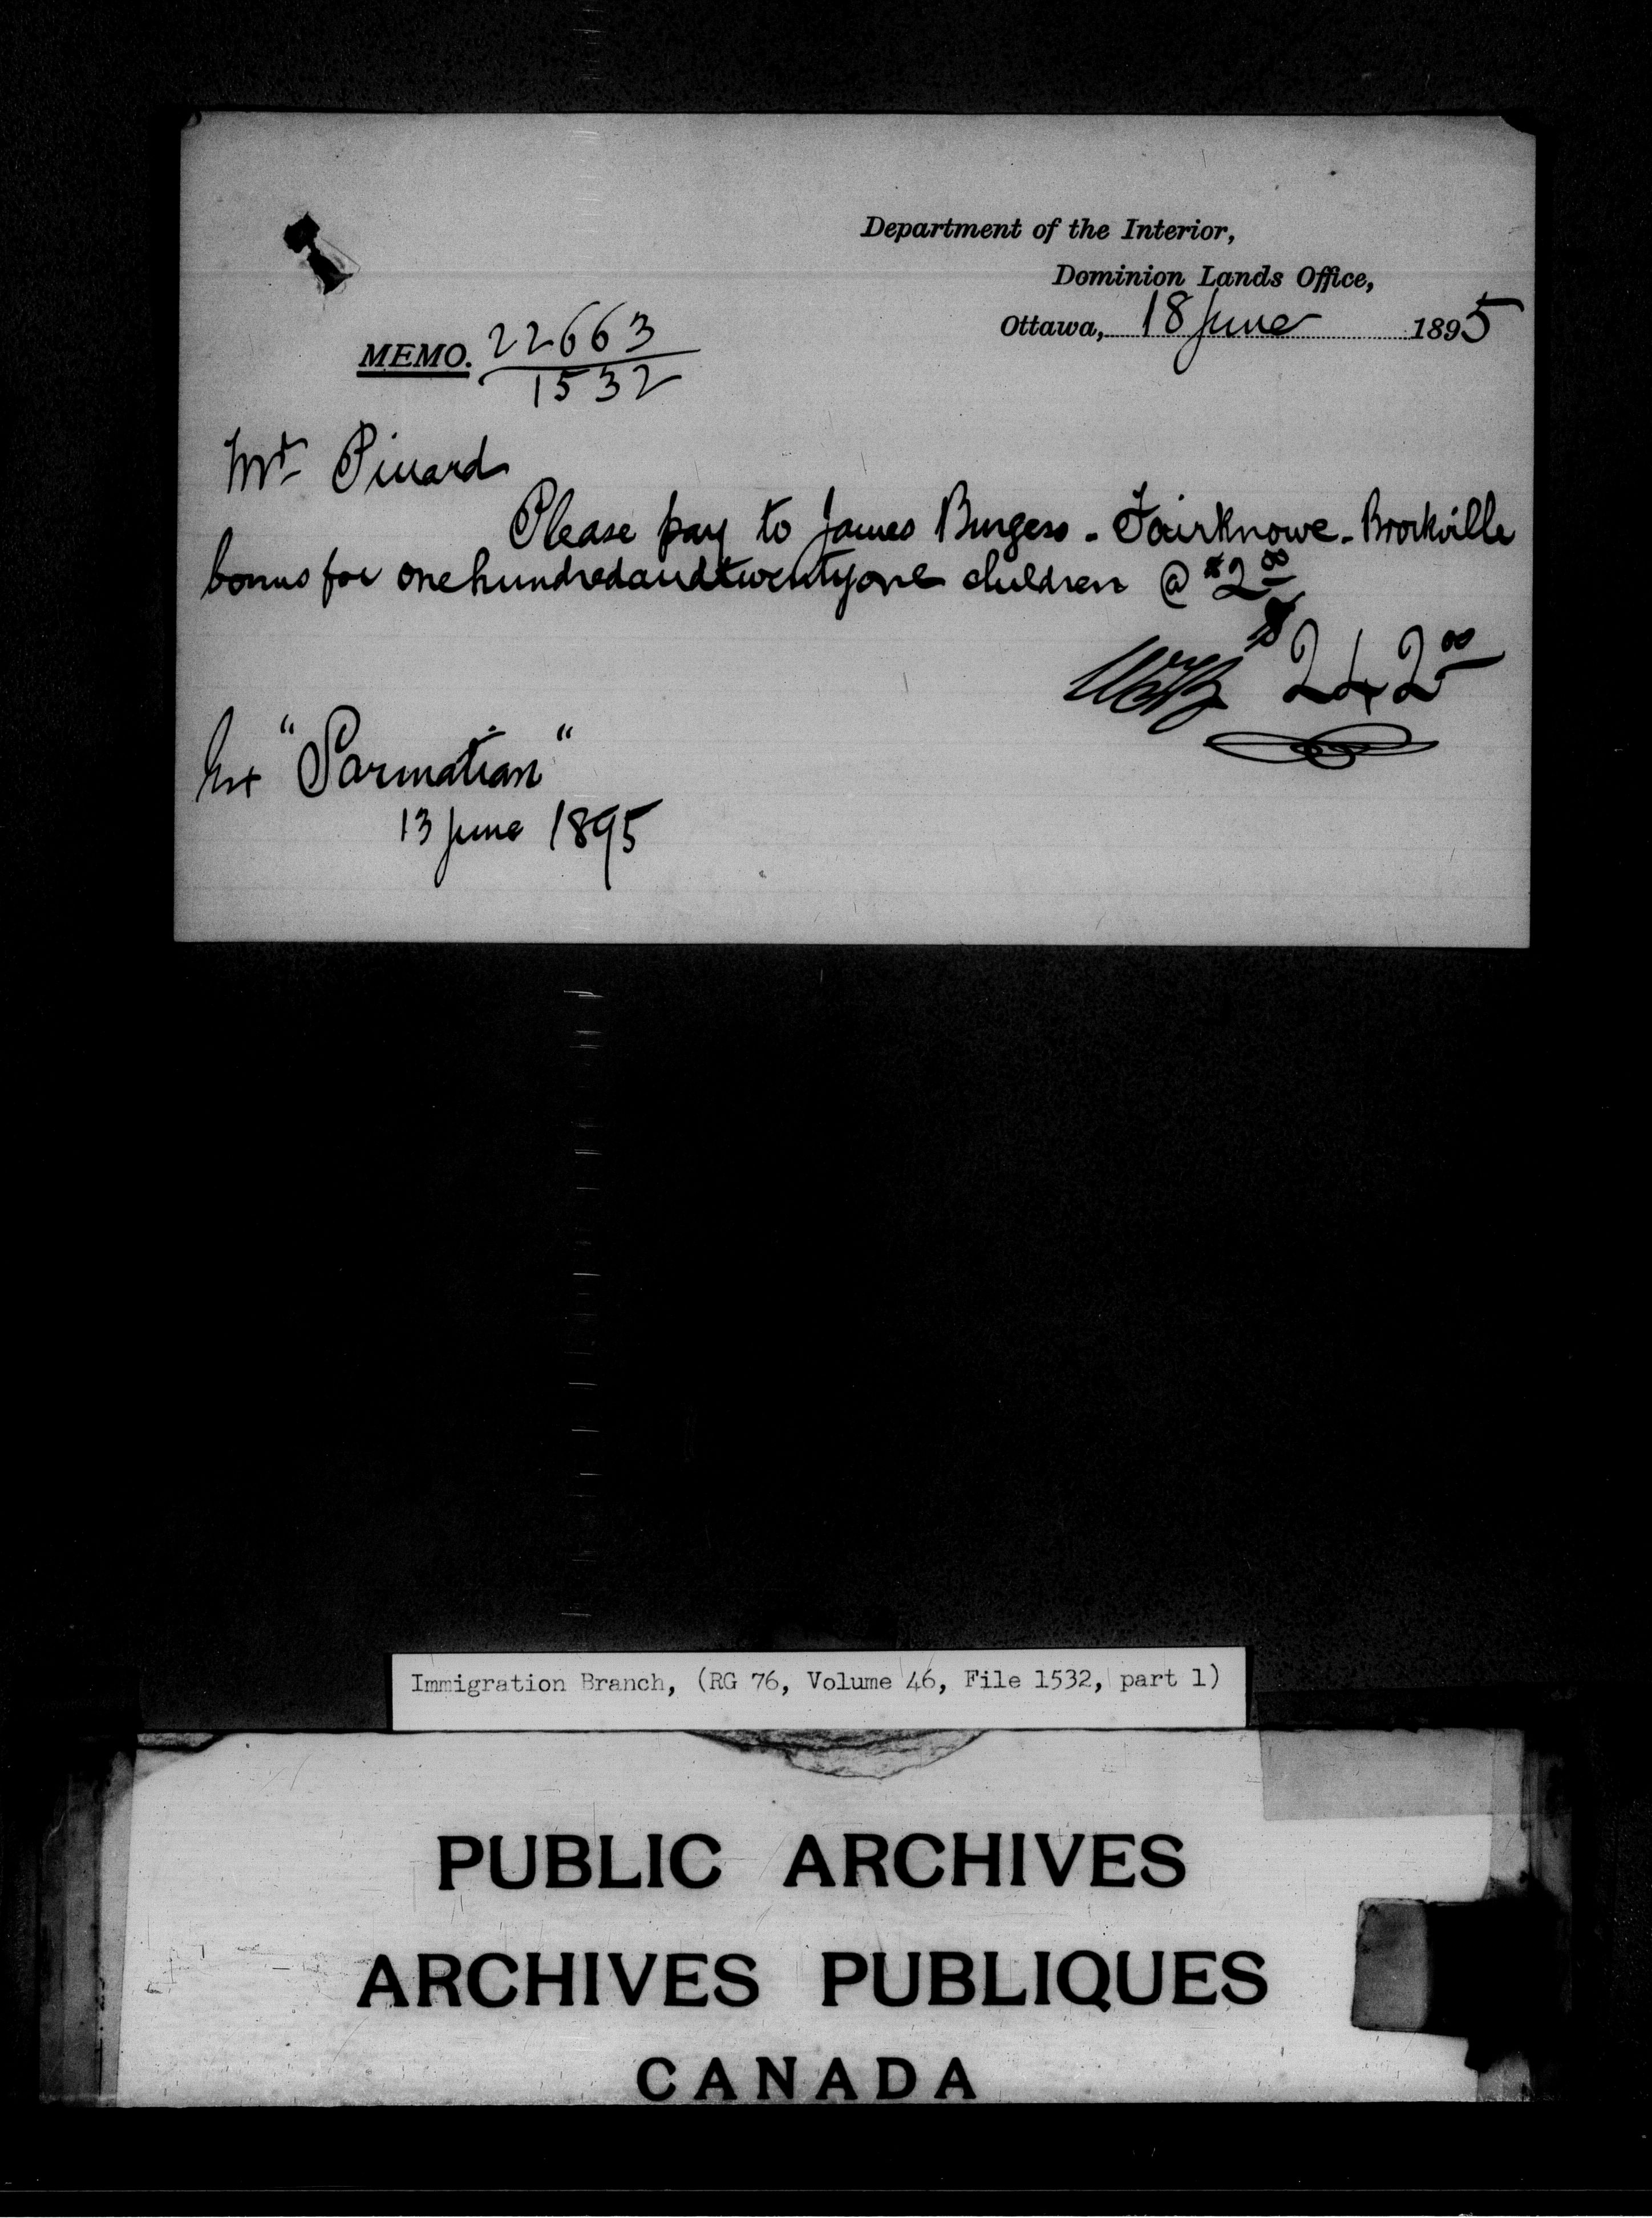 Department of the Interior,
Dominion Lands Office,
Ottawa, 18 June 1895
MEMO. 22663
1532
Mr Pinard
Please pay to James Burgess - Fairknowe - Brockville
bonus for one hundred and twenty one children @ $2 00
$ 242 00
"Sarmatian"
13 June 1895
Immigration Branch, (RG 76, Volume 46, File 1532, part 1)
PUBLIC ARCHIVES
ARCHIVES PUBLIQUES
CANADA